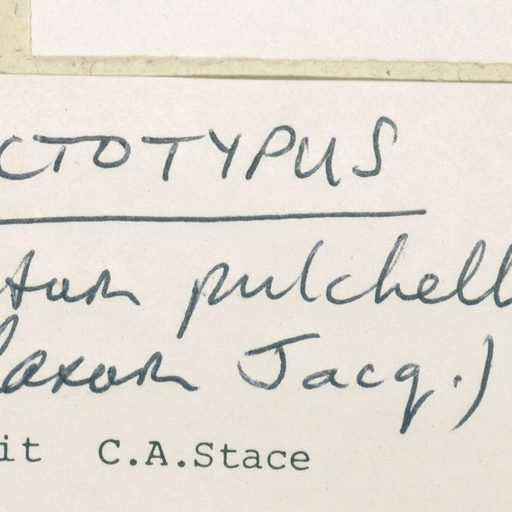 CTOTYPUS
tum pulchell
laxum Jacq.)
it C.A.Stace